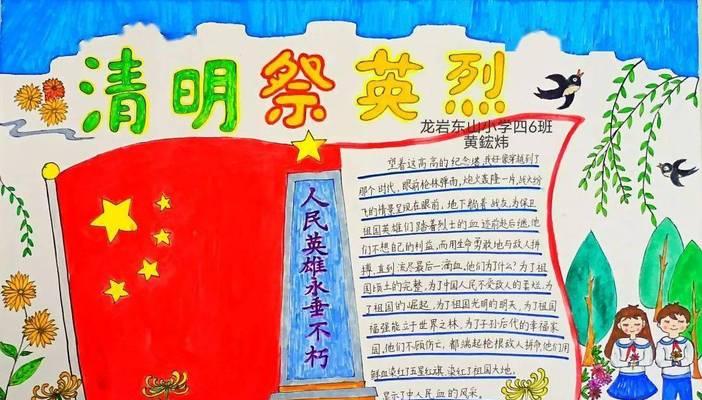 清明祭英烈
龙岩东山小学四6班
黄鋐炜
人民英雄永垂不朽
望着这高高的纪念塔,我好像穿越到了
那个时代,眼前枪林弹雨,炮火轰隆一片,战火纷
飞的情景呈现在眼前,地下躺着战友,为保卫
祖国英雄们踏着烈士的血迹前赴后继,他
们不想自己的利益,而用生命勇敢地与敌人拼
搏,直到流尽最后一滴血,他们为了什么?为了祖
国领土的完整,为了中国人民不受敌人的,为
了祖国的崛起,为了祖国光明的明天,为了祖国
福强能立于世界之林,为了子孙后代的幸福家
园,他们不顾伤亡,都端起枪根敌人拼命,他们用
鲜血染红了五星红旗,染红了祖国大地。
显示了中人民血的风采。